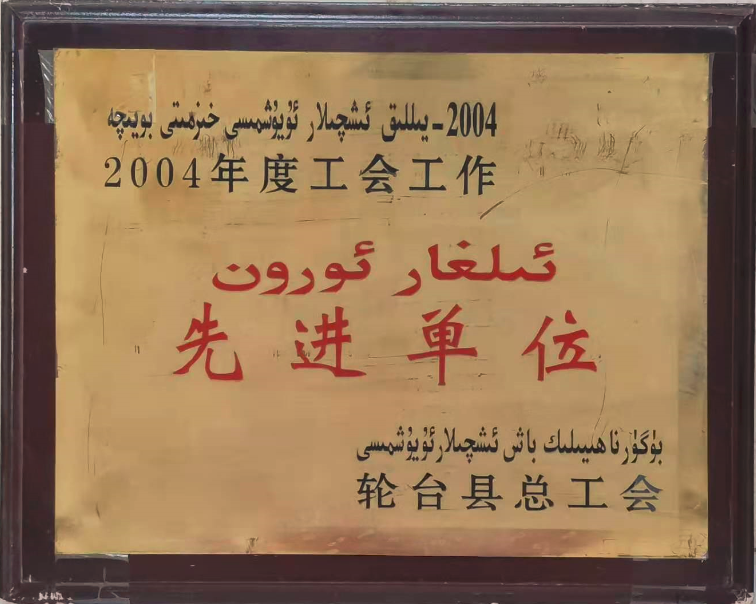 2004-يىللىق ئىشچىلار ئۇيۇشمىسى خىزمىتى بويىچە
2004年度工会工作
ئىلغار ئورون
先进单位
بۈگۈر ناھىيىلىك باش ئىشچىلار ئۇيۇشمىسى
轮台县总工会